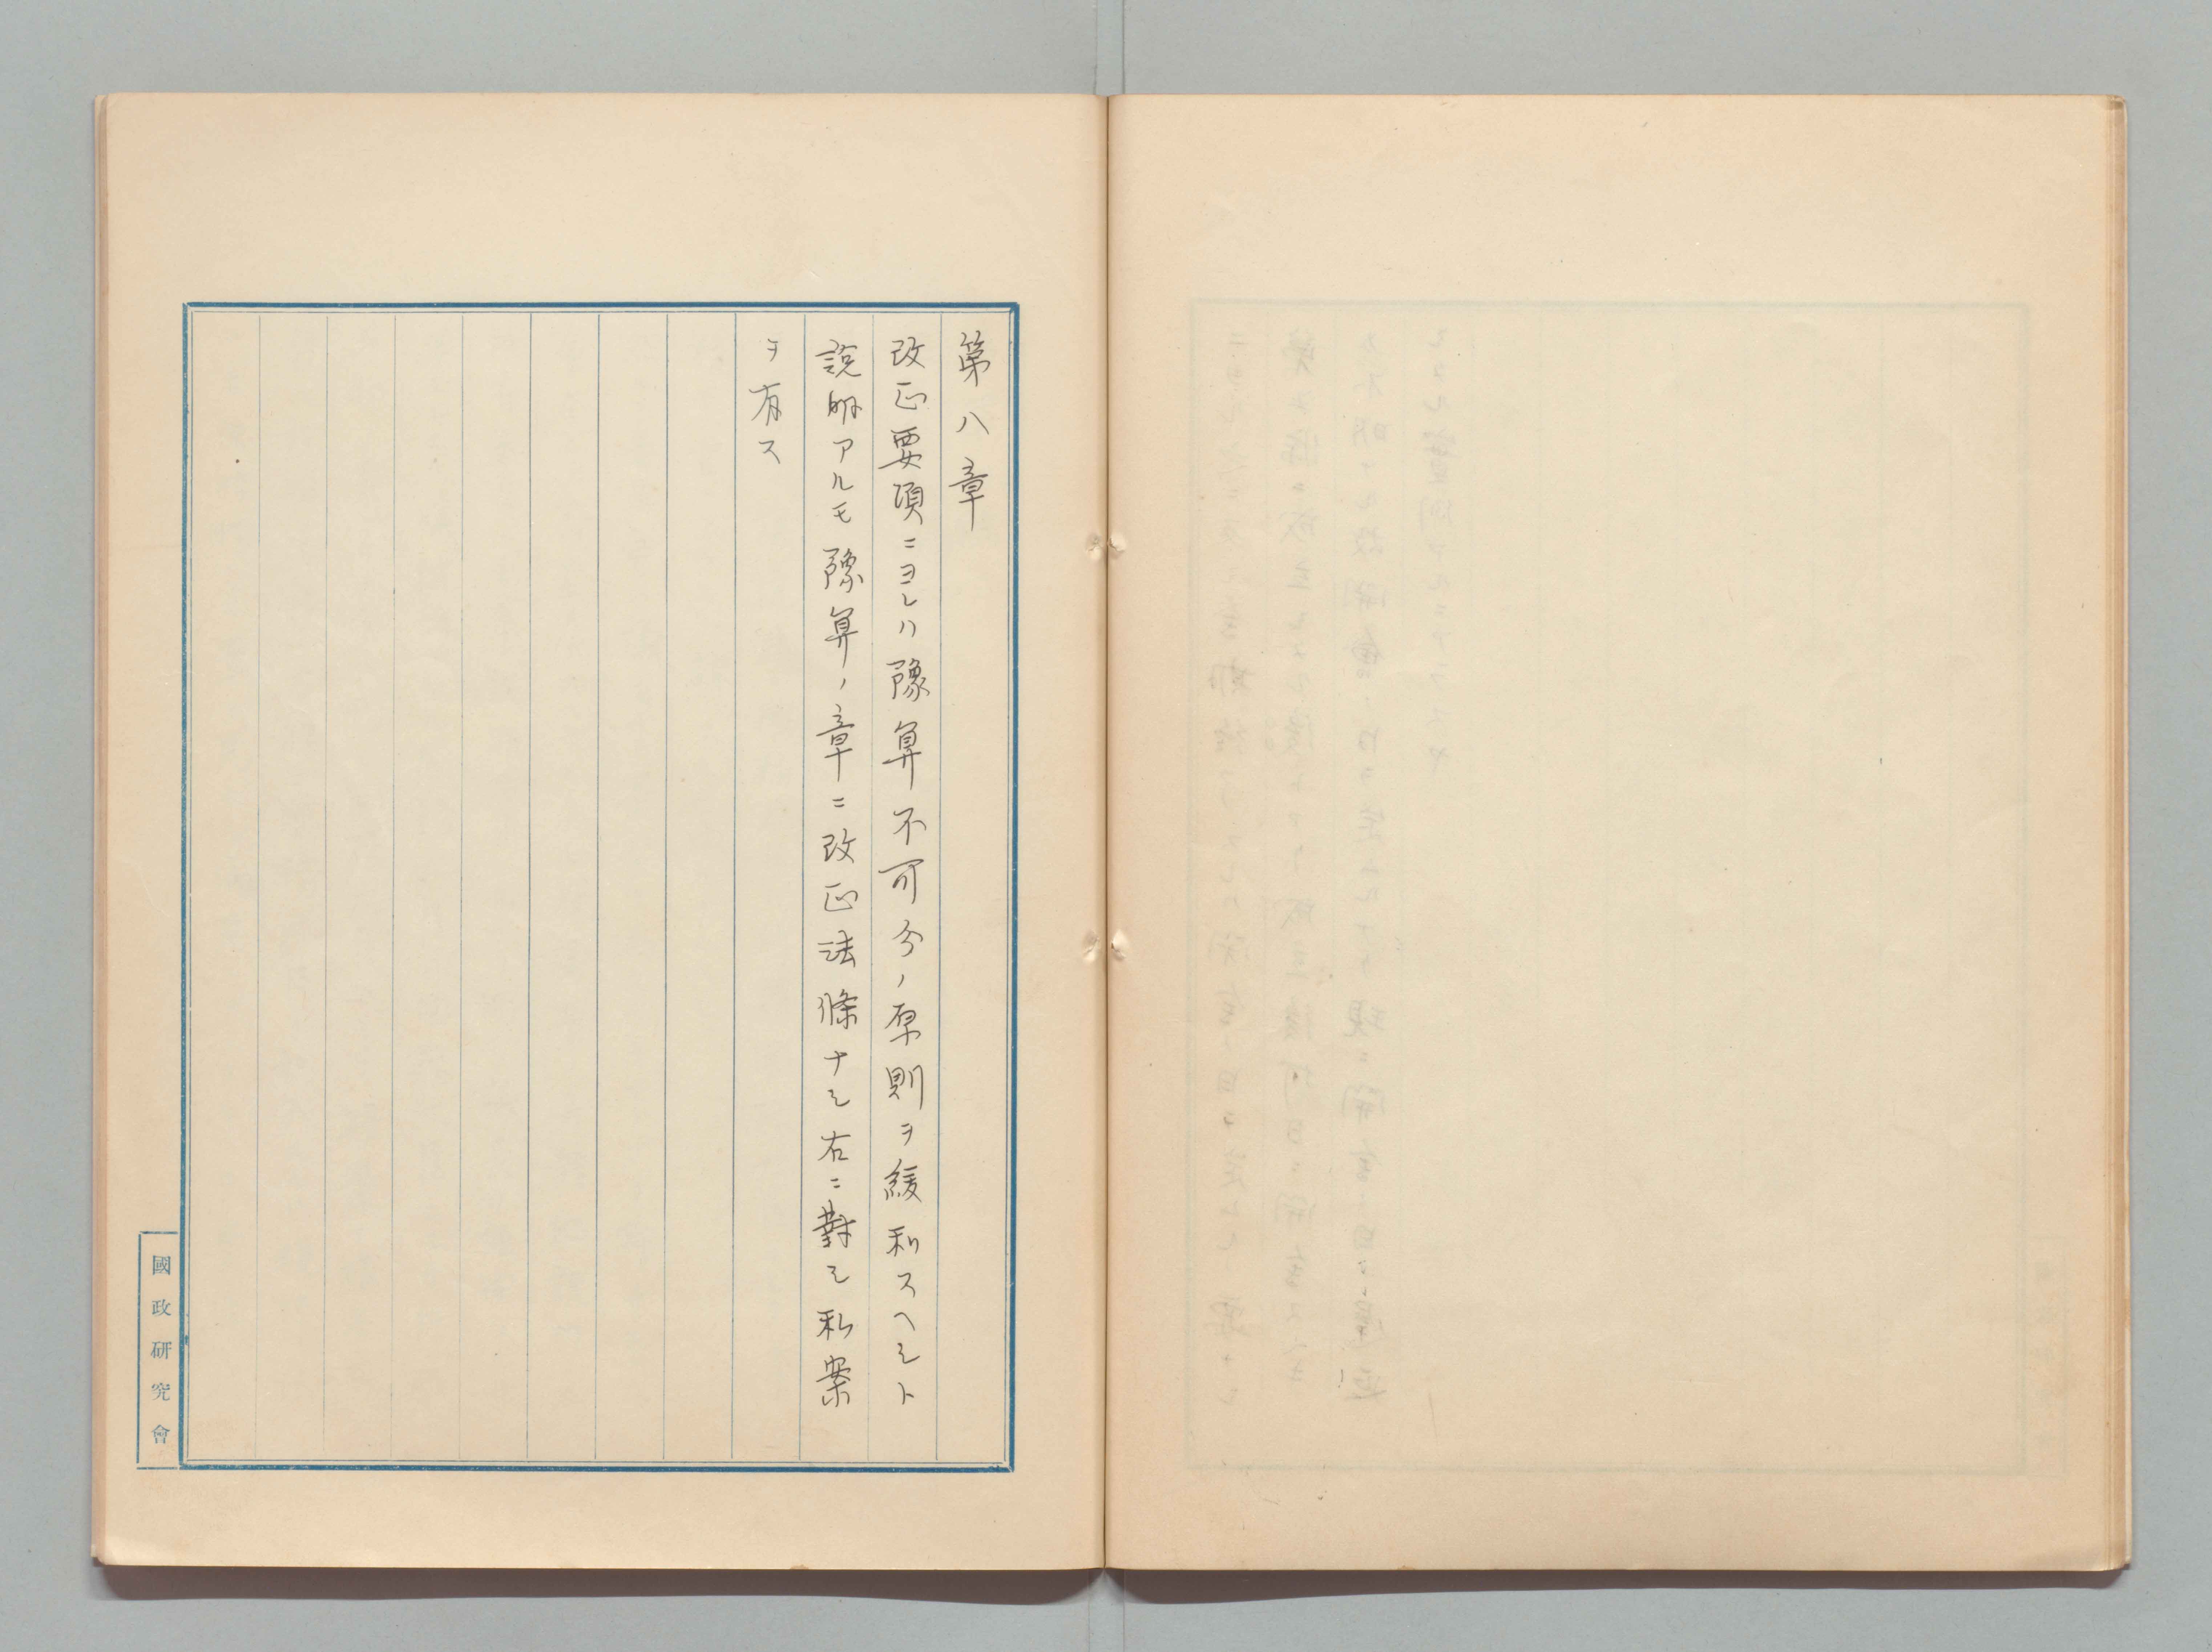 第八章
改正要項ニヨレハ豫算不可分ノ原則ヲ緩和スヘシト
説明アルモ豫算ノ章ニ改正法條ナシ右ニ對シ私案
ヲ有ス
國政研究會